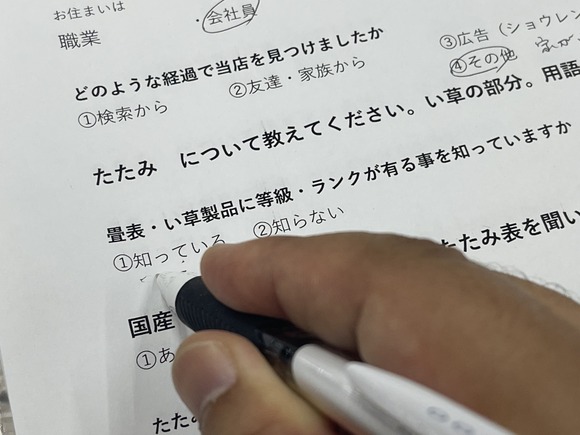 お住まいは
職業 ・会社員
どのような経過で当店を見つけましたか
①検索から ②友達・家族から ③広告（ショウレン
④その他
たたみ について教えてください。い草の部分。用語
畳表・い草製品に等級・ランクが有る事を知っていますか
①知っている ②知らない
たたみ表を聞い
国産
①あ
たた